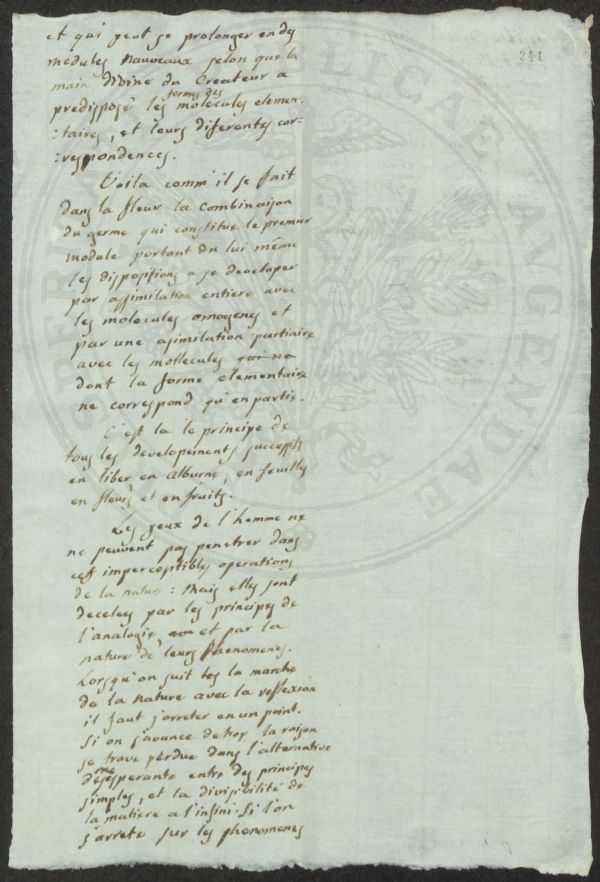 241
et qui peut se prolonger en des
modules nauveaux selon que la
main divine du Createur a
predisposé les formes des molecules elemen:
:taires, et leurs diferentes cor:
:respondences.
Voila comm'il se fait
dans la fleur la combinaison
du germe qui constitue le premier
module portant en lui même
les dispositions a se developer
par assimilation entiere avec
les molecules omogenes et
par une asimilation partiaire
avec les mollecules qui ne
dont la forme elementaire
ne correspond qu'en partie.
C'est la le principe de
tous les developements successifs
en liber en alburne, en feuilles
en fleurs et en fruits.
Les yeux de l'homme ne
ne peuvent pas penetrer dans
ces imperceptibles operations
de la nature: Mais elles sont
decelees par les principes de
l'analogie, et par la
nature de leurs phenomenes.
Lorsqu'on suit la marche
de la nature avec la reflexion
il faut s'arreter en un point.
Si on s'avance de trop la raison
se trove perdue dans l'alternative
desesperante entre des principes
simples, et la divisibilité de
la matiere a l'infini. Si l'on
s'arrete sur les phenomenes